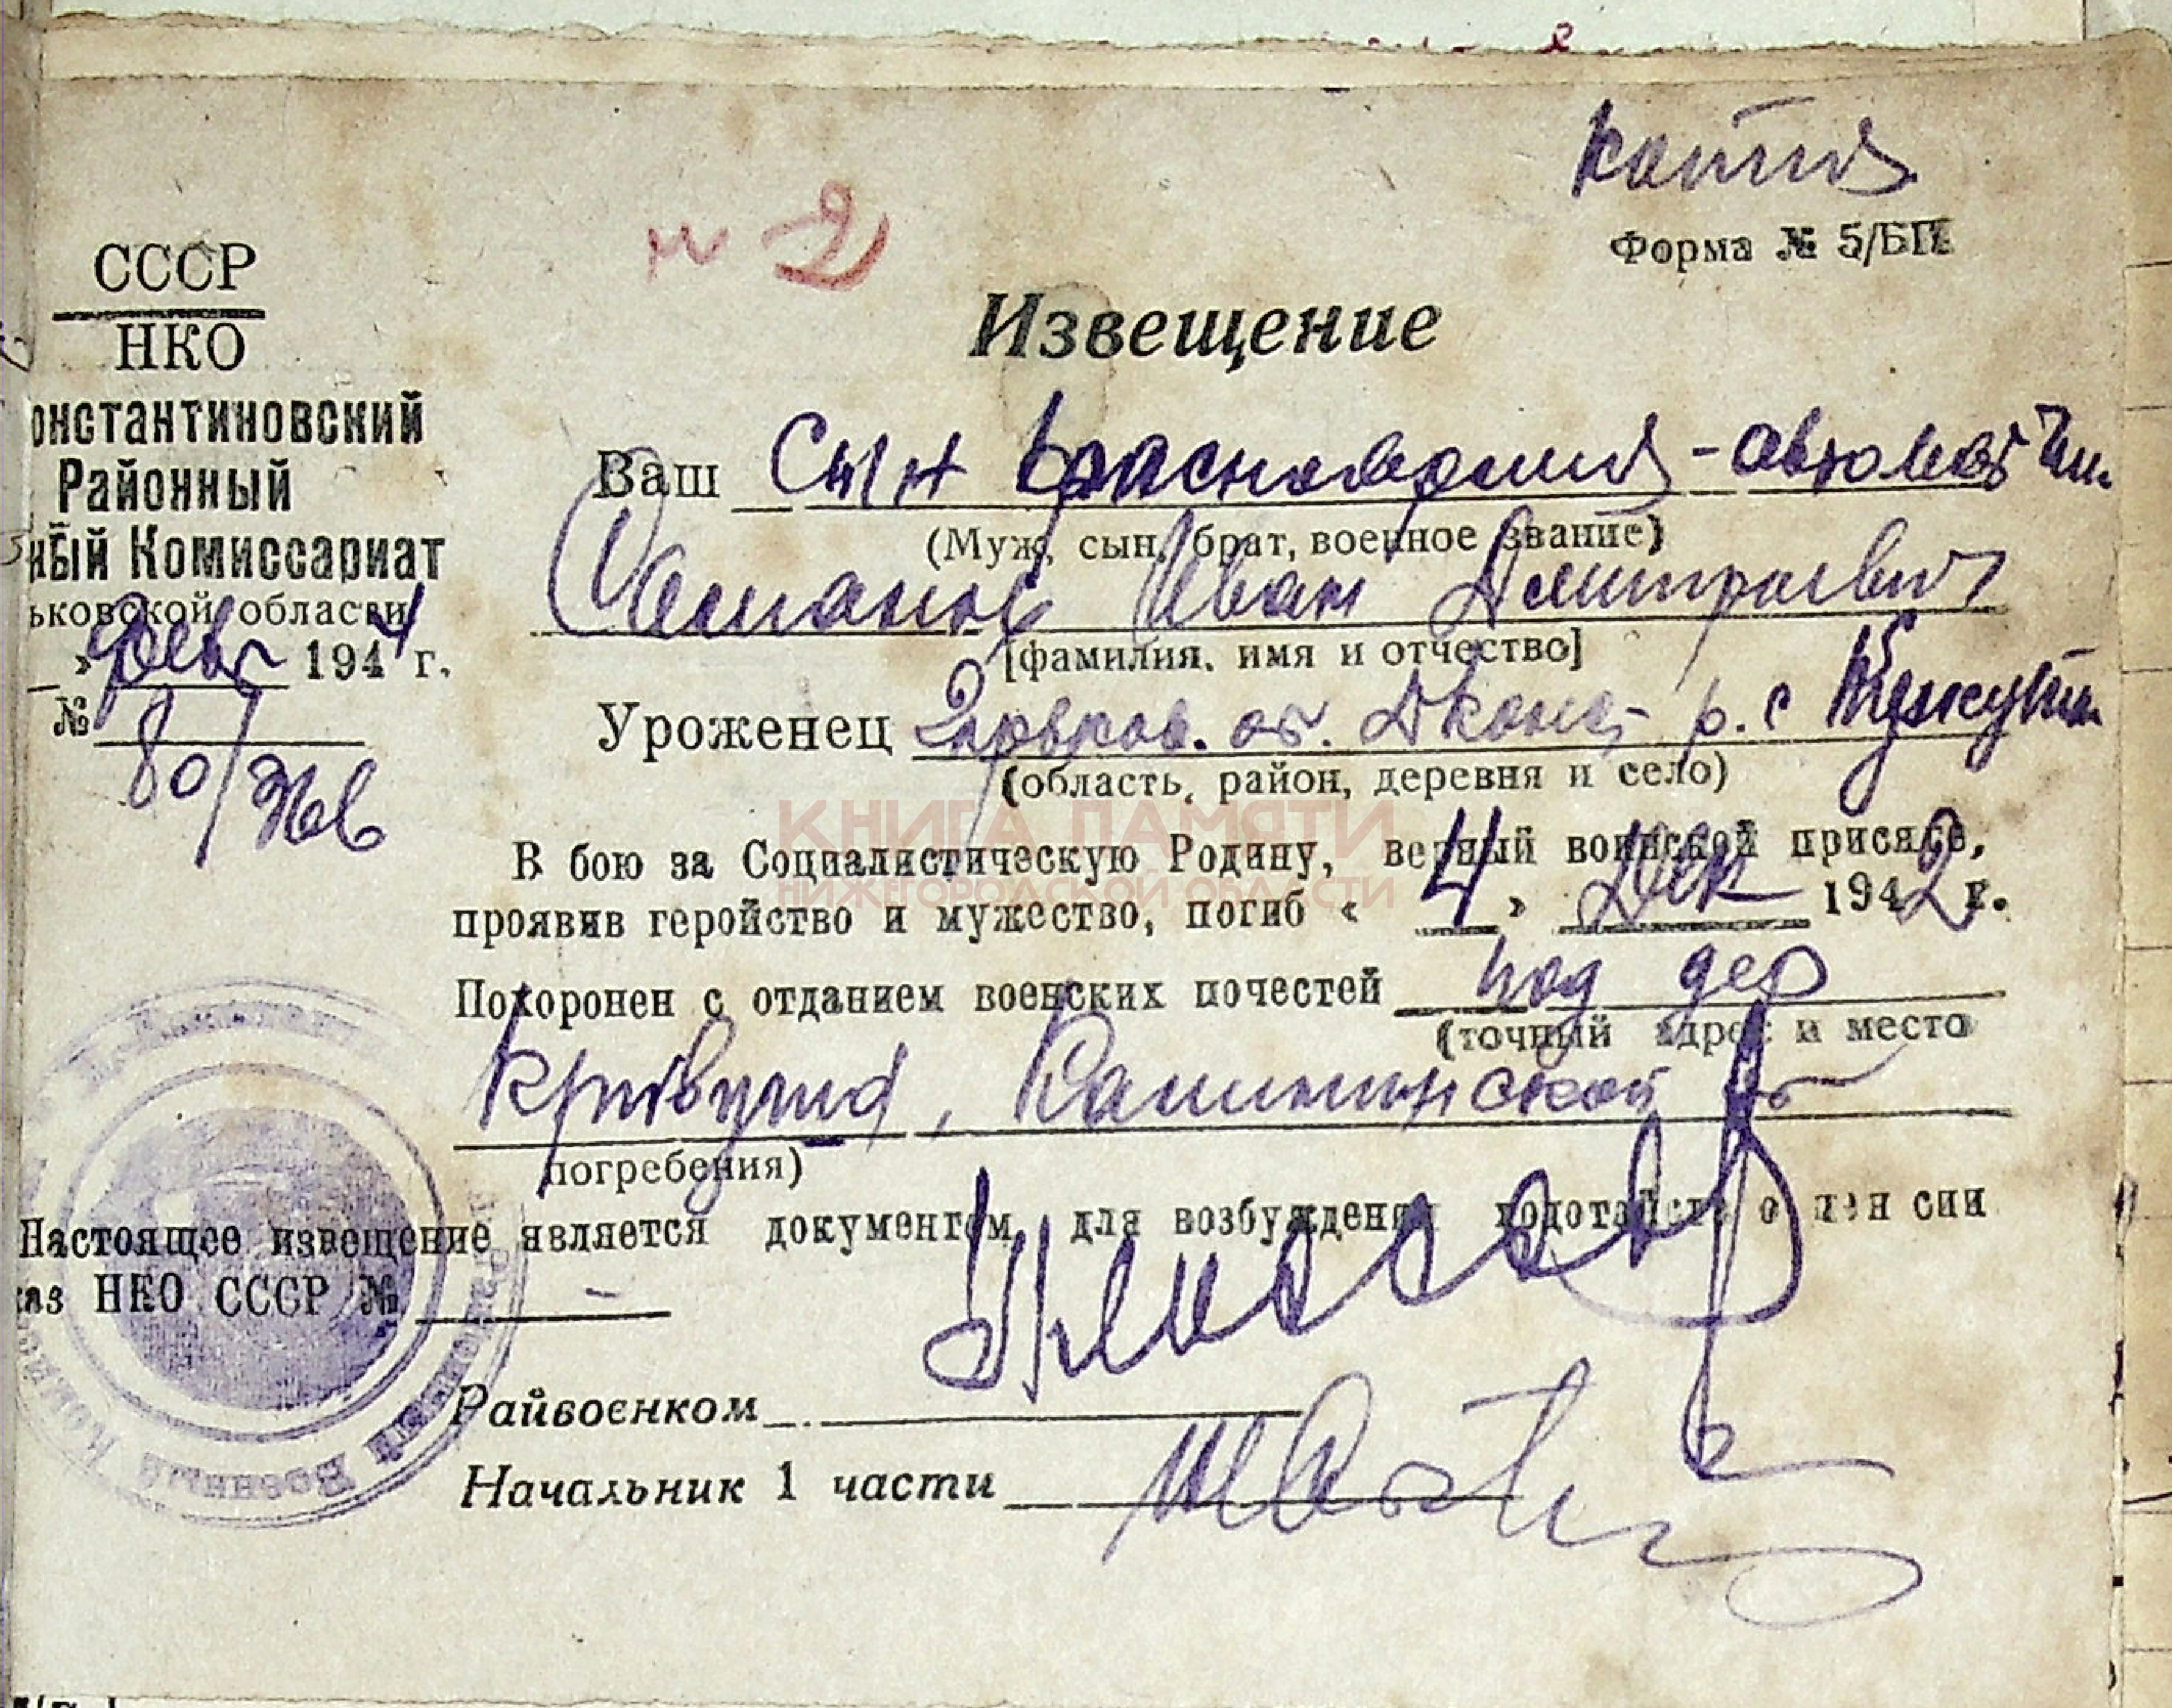 копия
Форма № 5/БП
№ 2
СССР
НКО
онстантиновский
Районный
ный Комиссариат
ьковской области
» февр 1944 г.
№ 80/
Извещение
Ваш сын красноармеец-автоматчик
(Муж, сын, брат, военное звание)
Иван Дмитриевич
[фамилия, имя и отчество]
Уроженец Горьков. об. Дконст р. с
(область, район, деревня и село)
КНИГА ПАМЯТИ
НИЖЕГОРОДСКОЙ ОБЛАСТИ
В бою за Социалистическую Родину, верный воинской присяге,
проявив геройство и мужество, погиб « 4 » Дек 1942 г.
Похоронен с отданием военских почестей под дер
(точный адрес и место
Кривуша, Калининской об
погребения)
Настоящее извещение является документом для возбуждения ходотайств о пен сии
каз НКО СССР № –
Райвоенком
Начальник 1 части